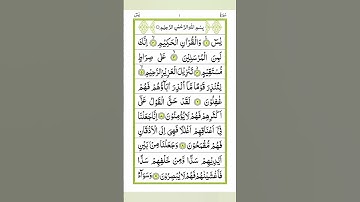 بِسْمِ اللّٰهِ الرَّحْمٰنِ الرَّحِيْمِ
يٰسٓ وَالْقُرْاٰنِ الْحَكِيْمِ اِنَّكَ
لَمِنَ الْمُرْسَلِيْنَ عَلٰى صِرَاطٍ
مُّسْتَقِيْمٍ تَنْزِيْلَ الْعَزِيْزِ الرَّحِيْمِ
لِتُنْذِرَ قَوْمًا مَّآ اُنْذِرَ اٰبَآؤُهُمْ فَهُمْ
غٰفِلُوْنَ لَقَدْ حَقَّ الْقَوْلُ عَلٰٓى
اَكْثَرِهِمْ فَهُمْ لَا يُؤْمِنُوْنَ اِنَّا جَعَلْنَا
فِيْٓ اَعْنَاقِهِمْ اَغْلٰلًا فَهِيَ اِلَى الْاَذْقَانِ
فَهُمْ مُّقْمَحُوْنَ وَجَعَلْنَا مِنْۢ بَيْنِ
اَيْدِيْهِمْ سَدًّا وَّمِنْ خَلْفِهِمْ سَدًّا
فَاَغْشَيْنٰهُمْ فَهُمْ لَا يُبْصِرُوْنَ وَسَوَآءٌ